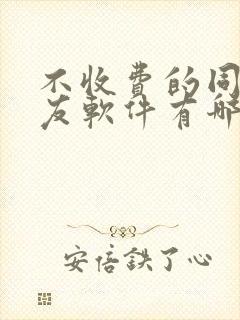 不收費的同
友軟件有哪
安倍鉄了心